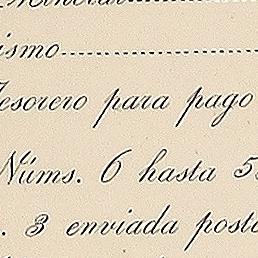 ismo
Tesorero para pago
Núms. 6 hasta 5
. 3 enviada posto